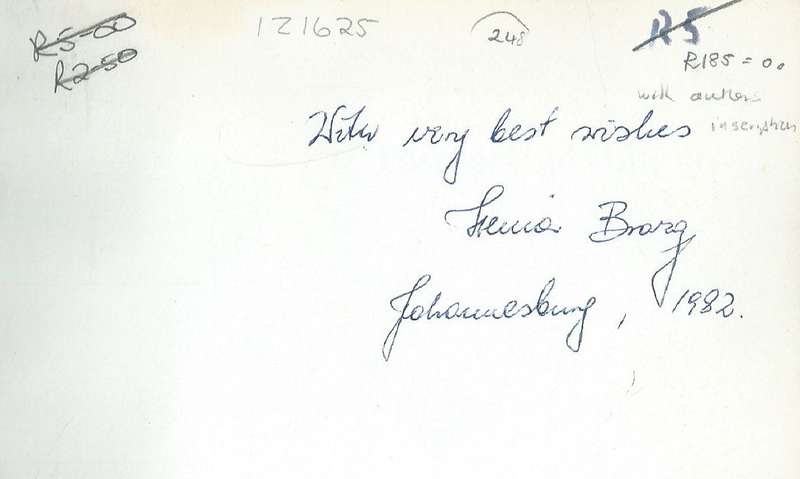 R5-00
R2-50
121625
248
R5
R185=00
with authors
inscription
With very best wishes
Henia Brazg
Johannesburg, 1982.